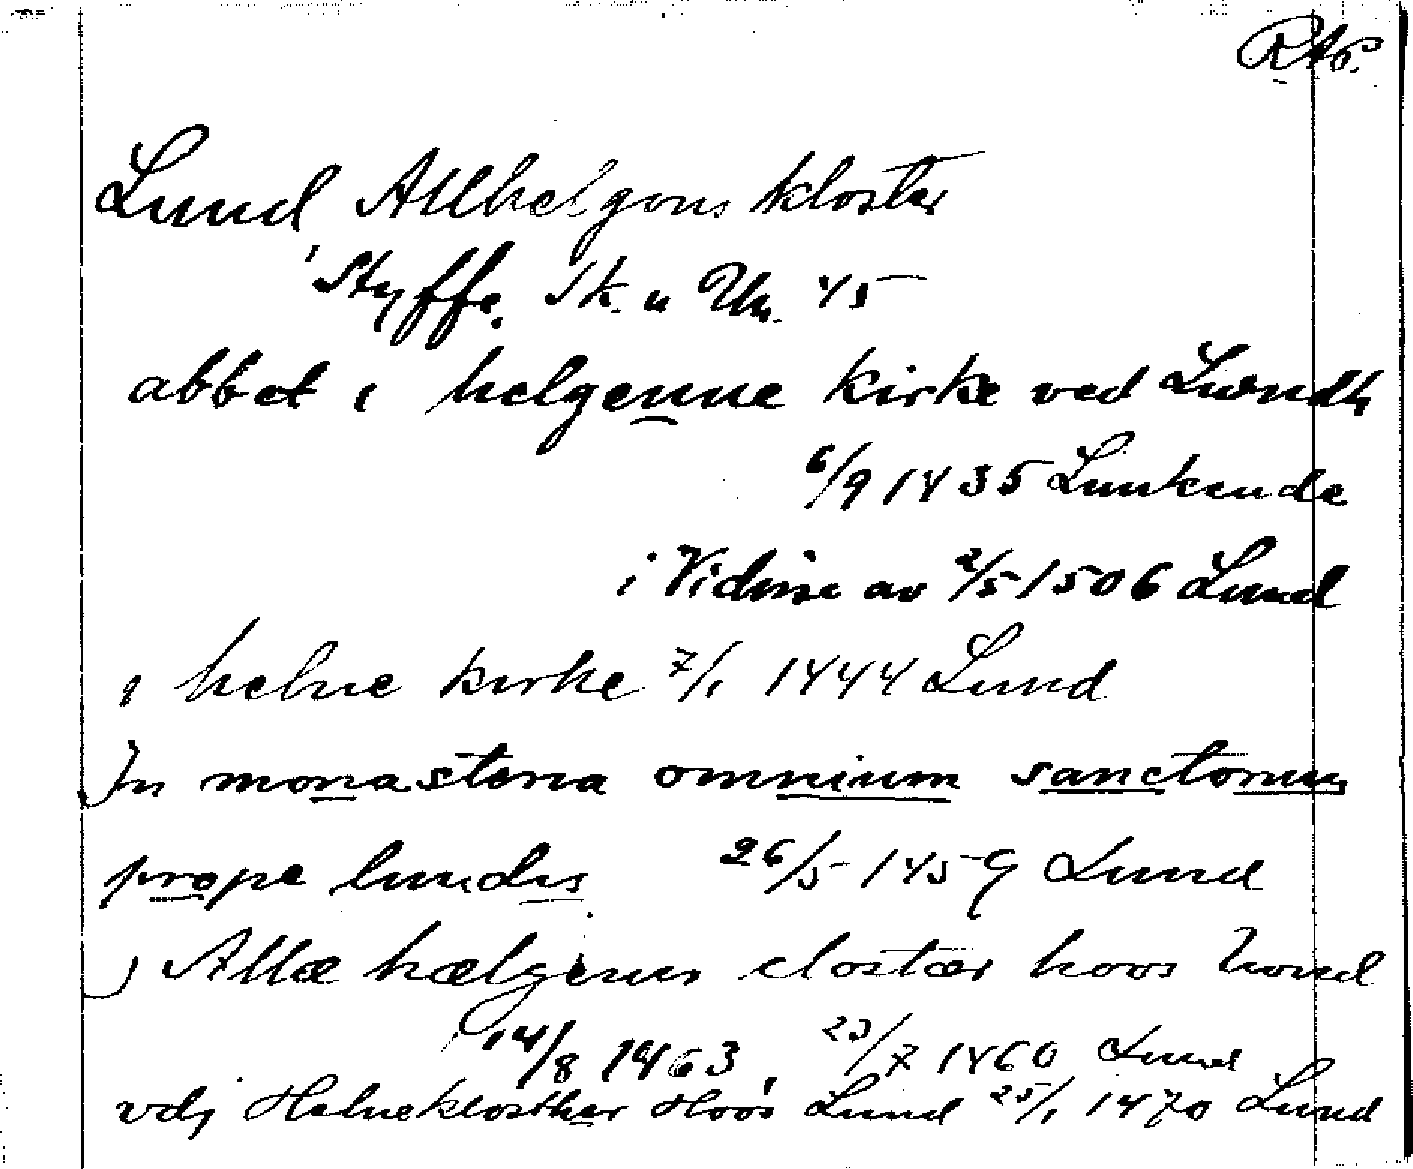 RAp.
Lund Allhelgons kloster
Styffe. Sk. u Un. 45
abbot i helgenne kirke ved Lundh
6/9 1435 Lunkende
i Vidisse av 2/5 1506 Lund
i helne kirke 7/1 1444 Lund
In monasteria omnium sanctorum
prope lundis 26/5 1459 Lund
j Allæ hælgens closter hoos Lund
14/8 1463, 23/7 1460 Lund
vdj Helneklosther Hoos Lund 25/1 1470 Lund